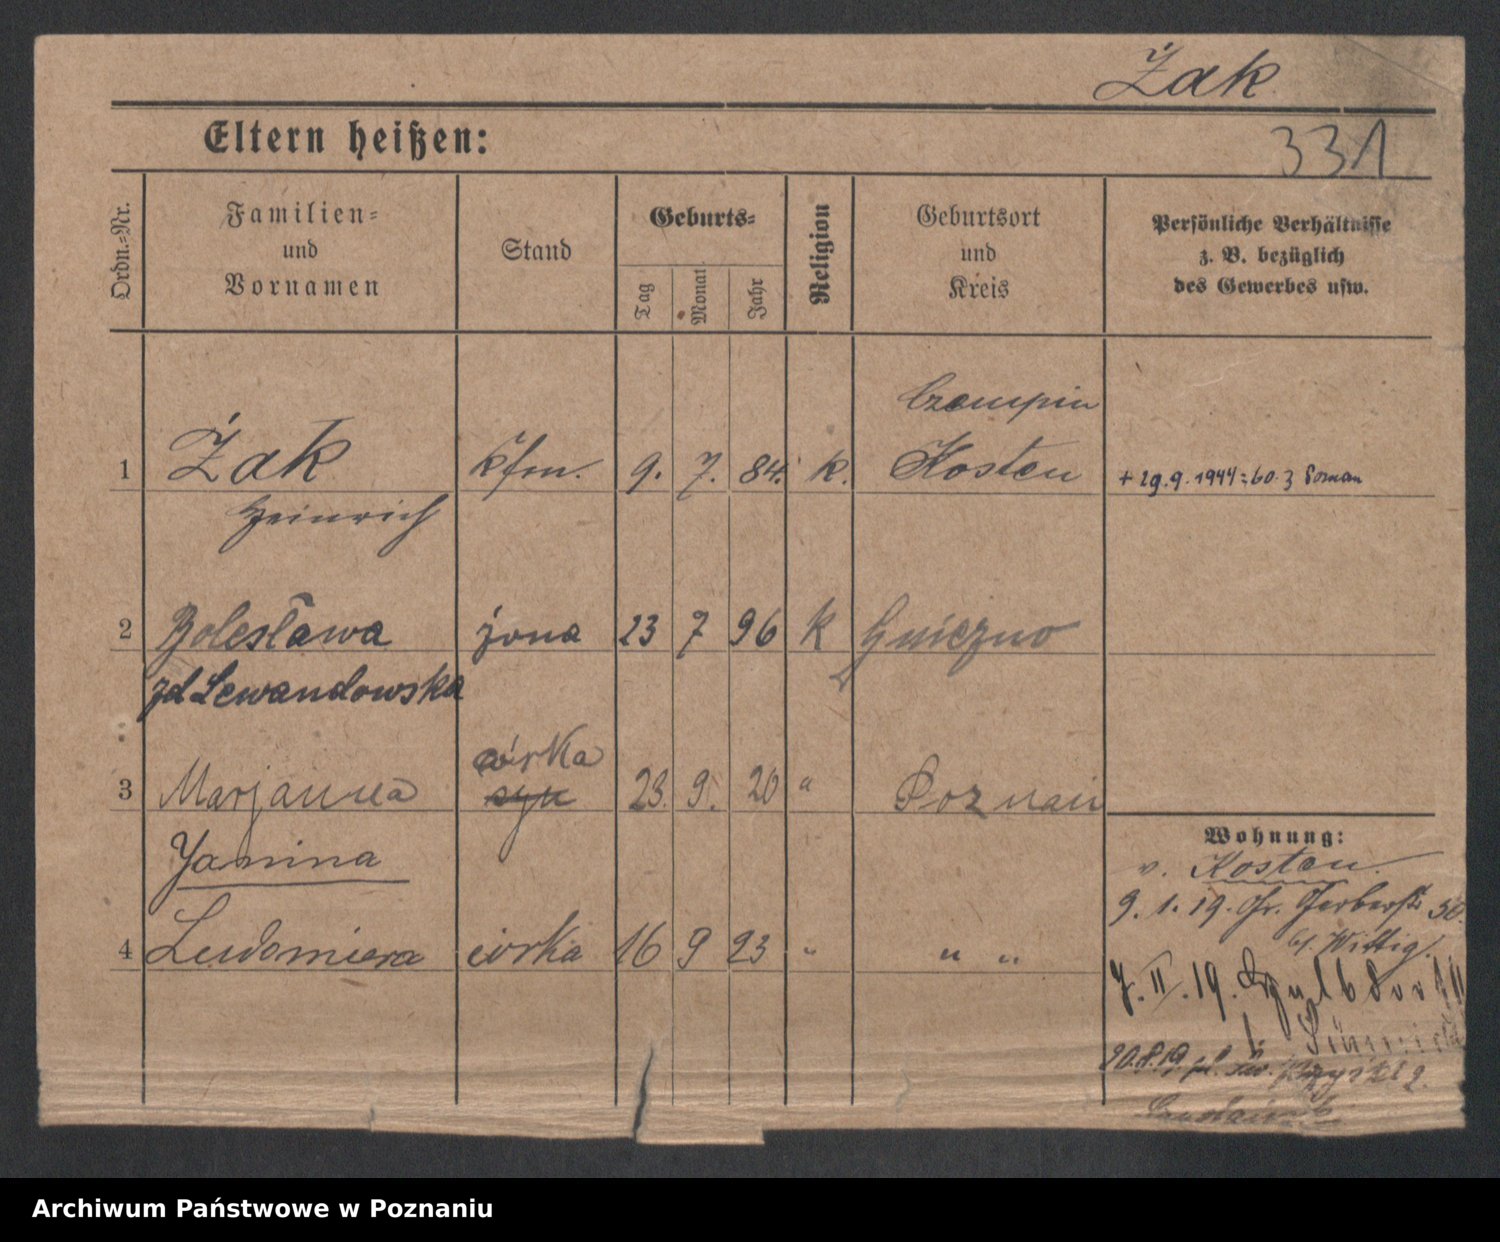 Żak
331
Eltern heißen:
Ordn.-Nr.
Familien-
und
Vornamen
Stand
Geburts-
Tag
Monat
Jahr
Religion
Geburtsort
und
Kreis
Persönliche Verhältnisse
z. B. bezüglich
des Gewerbes usw.
Czempin
1 Żak Kfm. 9. 7. 84. k. Kosten + 29.9.1944 : 60.3 Poznań
Heinrich
2 Bolesława żona 23 7 96 k Gniezno
zd Lewandowska
córka
3 Marjanna syn 23. 9. 20 " Poznań
Janina
4 Ludomiera córka 16 9 23 " " "
Wohnung:
v. Kosten.
9. 1. 19. Gr. Gerberstr. 50.
bei Wittig.
7. II. 19.
20.8.19 pl. św.